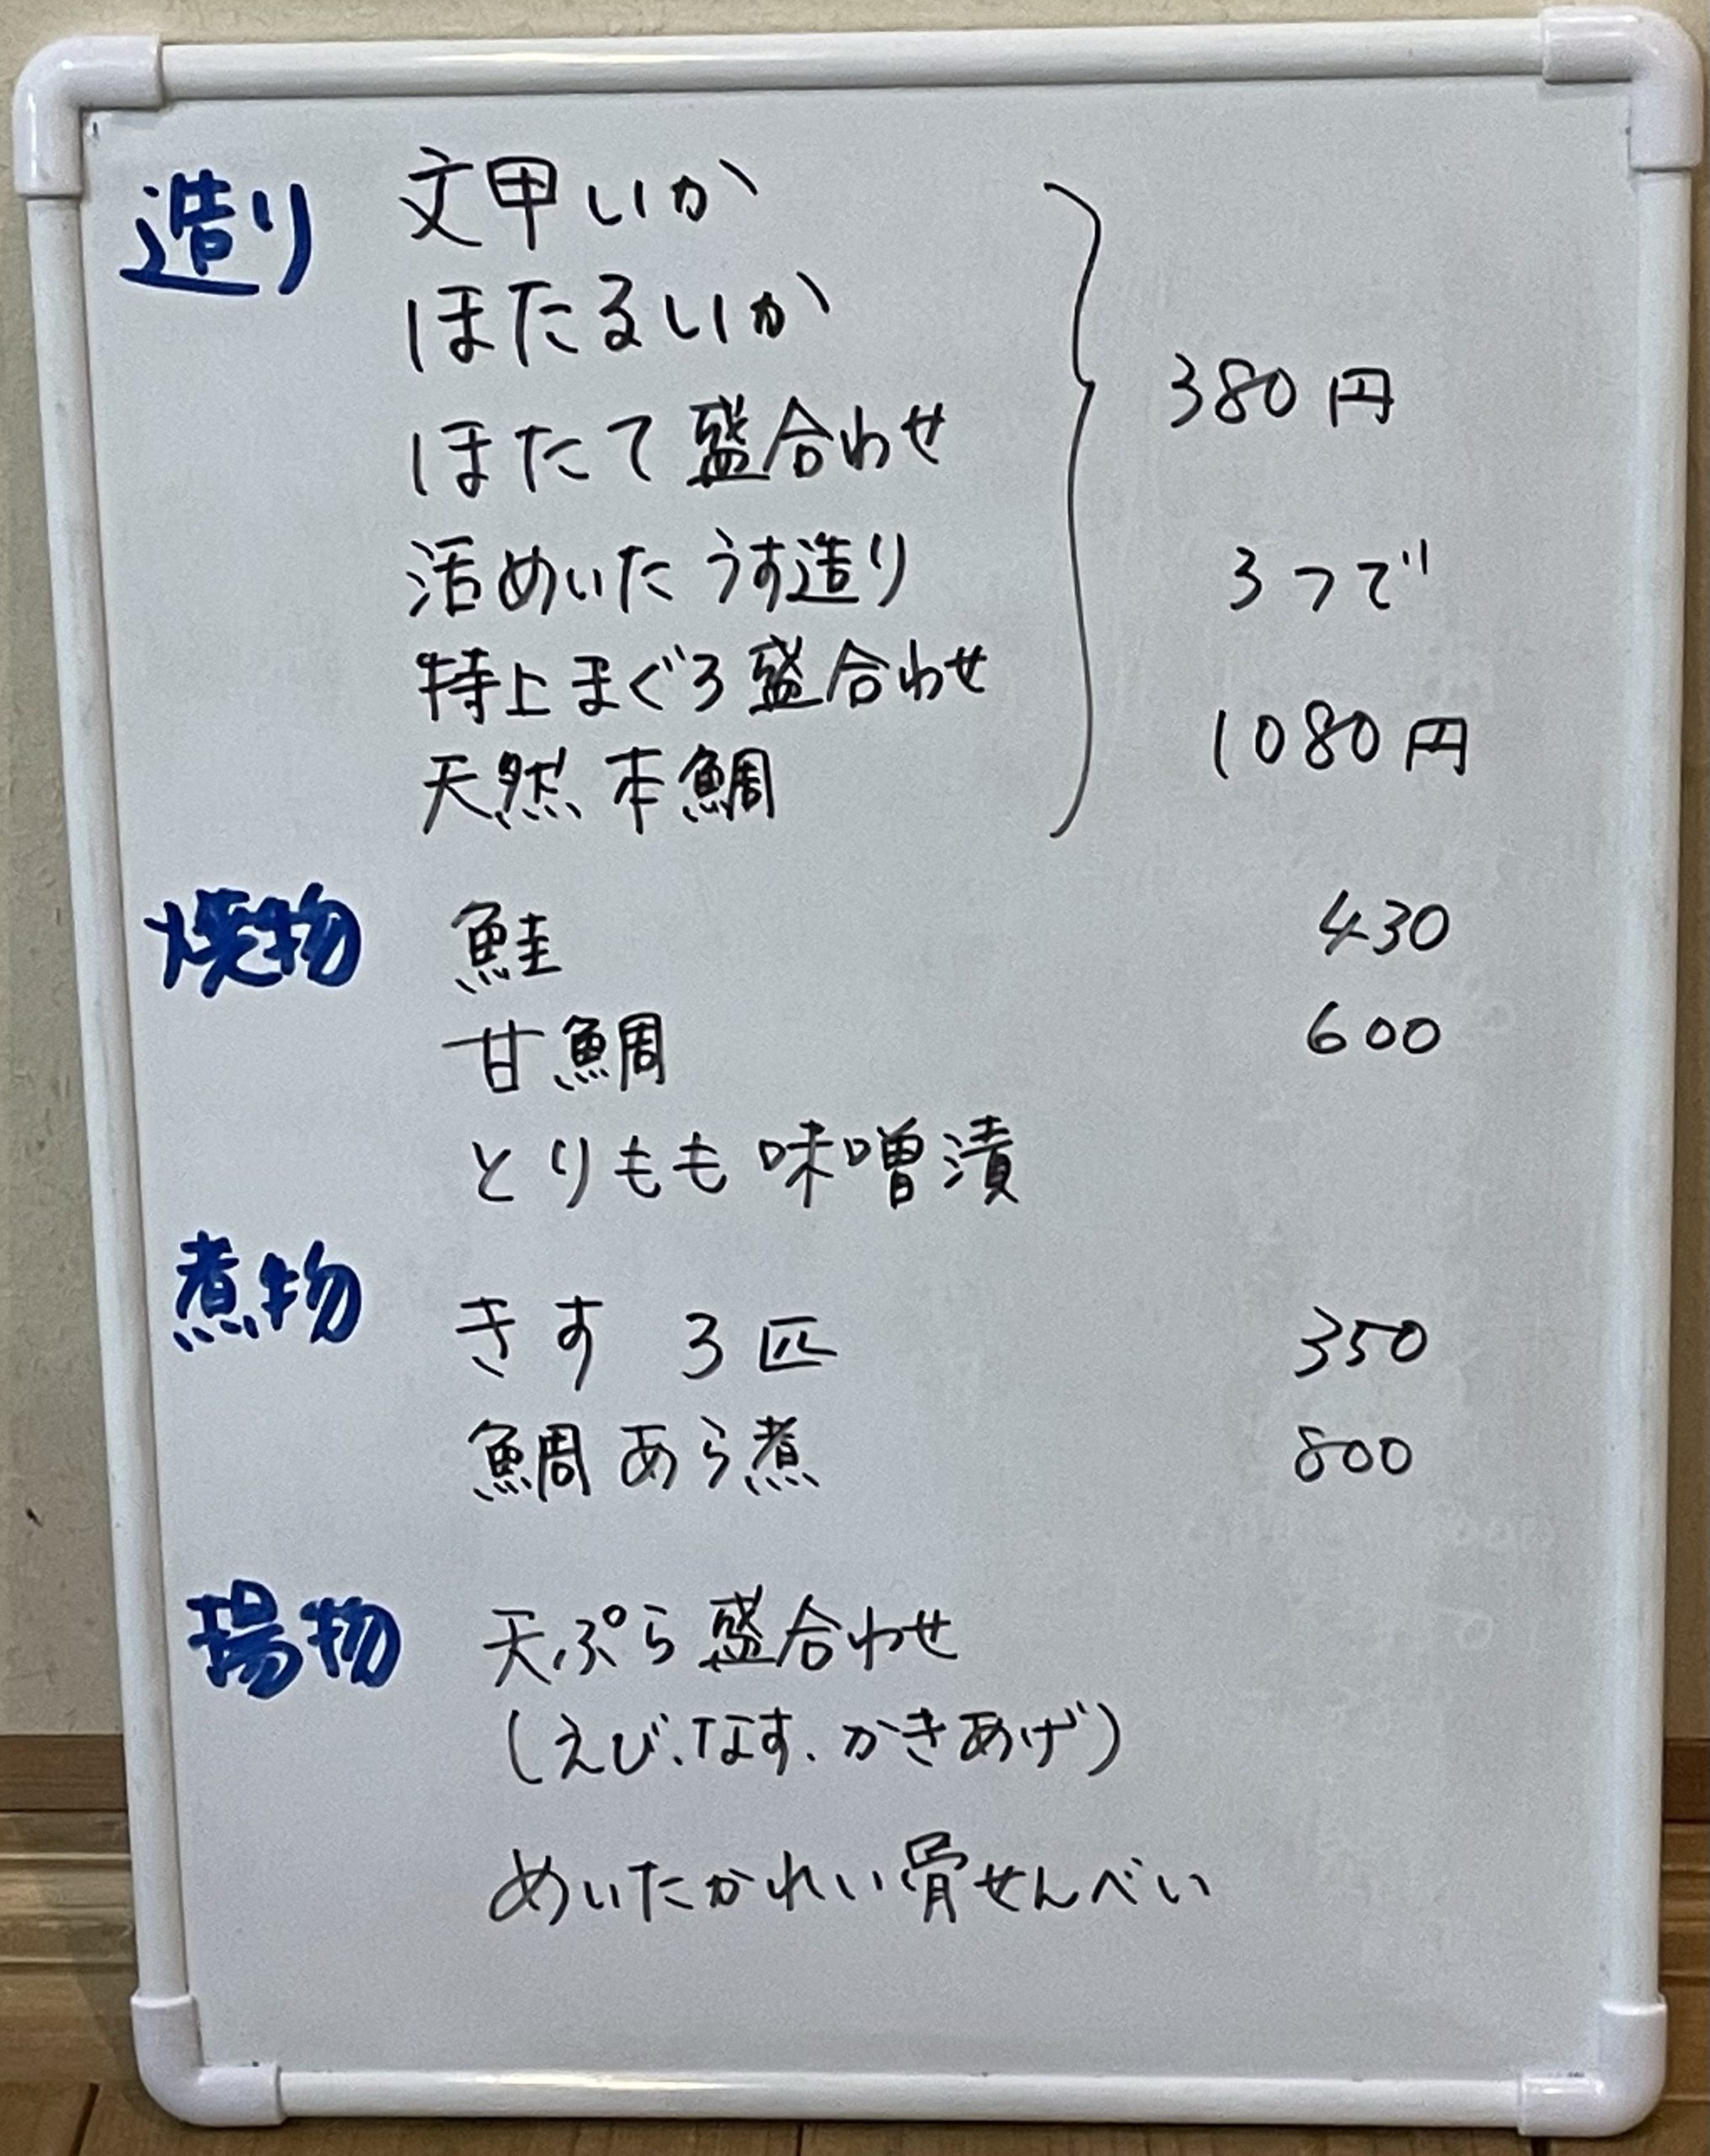 造り 文甲いか
ほたるいか
ほたて盛合わせ 380円
活めいた うす造り 3つで
特上まぐろ盛合わせ 1080円
天然本鯛
焼物 鮭 430
甘鯛 600
とりもも味噌漬
煮物 きす 3匹 350
鯛あら煮 800
揚物 天ぷら盛合わせ
(えび、なす、かきあげ)
めいたかれい骨せんべい